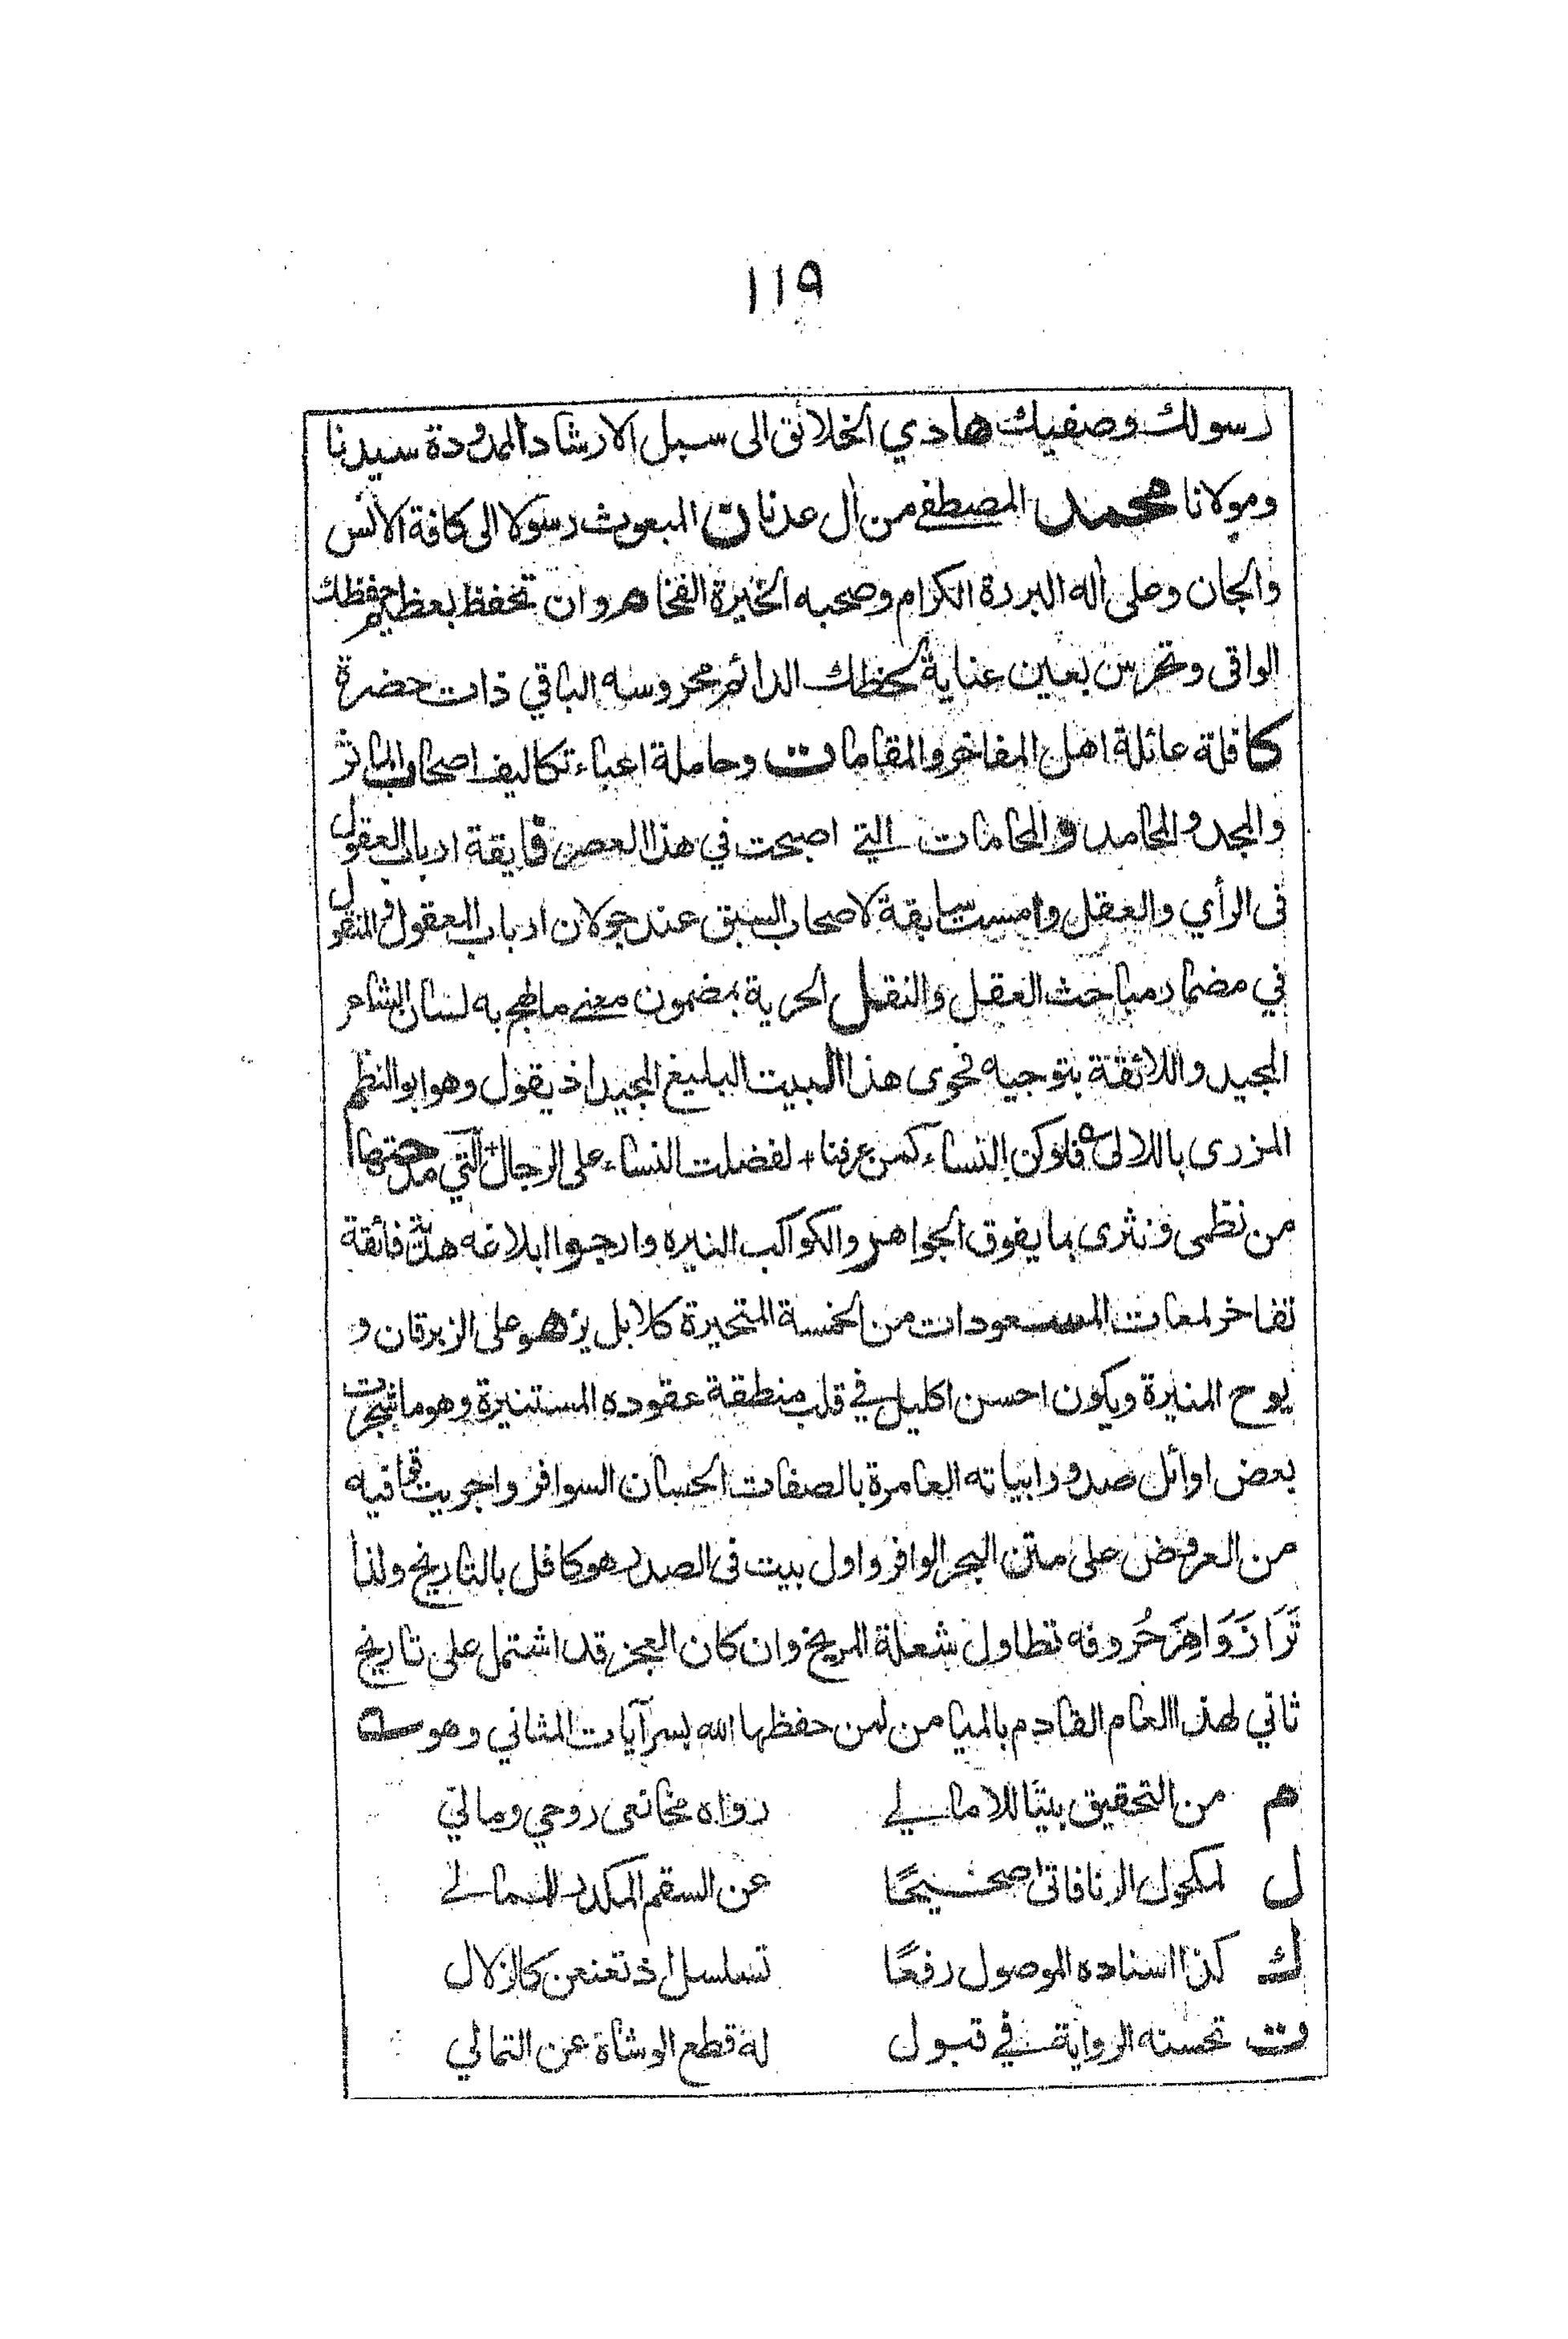 ١١٩
رسولك وصفيك هادي الخلائق الى سبل الارشاد الممدودة سيدنا
ومولانا محمد المصطفى من آل عدنان المبعوث رسولا الى كافة الانس
والجان وعلى آله البررة الكرام وصحبه الخيرة الفخام وان تحفظ بعظيم حفظك
الواقى وتحرس بعين عناية لحظك الدائم محروسه الباقي ذات حضرة
كافلة عائلة اهل المفاخر والمقامات وحاملة اعباء تكاليف اصحاب المآثر
والمجد والمحامد والمحامات التي اصبحت في هذا العصر فايقة ارباب العقول
فى الرأي والعقل وامست سابقة لاصحاب السبق عند جولان ارباب المعقول والمنقول
في مضمار مباحث العقل والنقل الحرية بمضمون معنى ما لهج به لسان الشاعر
المجيد واللائقة بتوجيه فحوى هذا البيت البليغ المجيد اذ يقول وهو ابو النظم
المزرى باللالى فلو كن النساء كمن عرفنا + لفضلت النساء على الرجال + التي مدحتها
من نظمى ونثرى بما يفوق الجواهر والكواكب النيره وارجو ابلاغه فائقة
تفاخر لمعات المسعودات من الخمسة المتحيرة كلا بل يزهو على الزبرقان و
يوح المنيرة ويكون احسن اكليل في قلب منطقة عقوده المستنيرة وهو ما شجرت
بعض اوائل صدور ابياته العامرة بالصفات الحسان السوافر واجريت قوافيه
من العروض على متن البحر الوافر واول بيت فى الصدر هو كافل بالتاريخ ولذا
تَرَا زَوَاهِرَ حُرُوفه تطاول شعلة المريخ وان كان العجز قد اشتمل على تاريخ
ثاني لهذا العام القادم بالميامن لمن حفظها الله بسر آيات المثاني وهو
م من التحقيق بيتًا للامالي رواه مخانعى روحي ومالي
ل لمكحول الرنا فاتى صحيحًا عن السقم المكدر
ك كذا اسناده الموصول رفعًا تسلسل اذ تعنعن كالزلال
ت تحسنه الرواية في قبول له قطع الوشاة عن التمالي